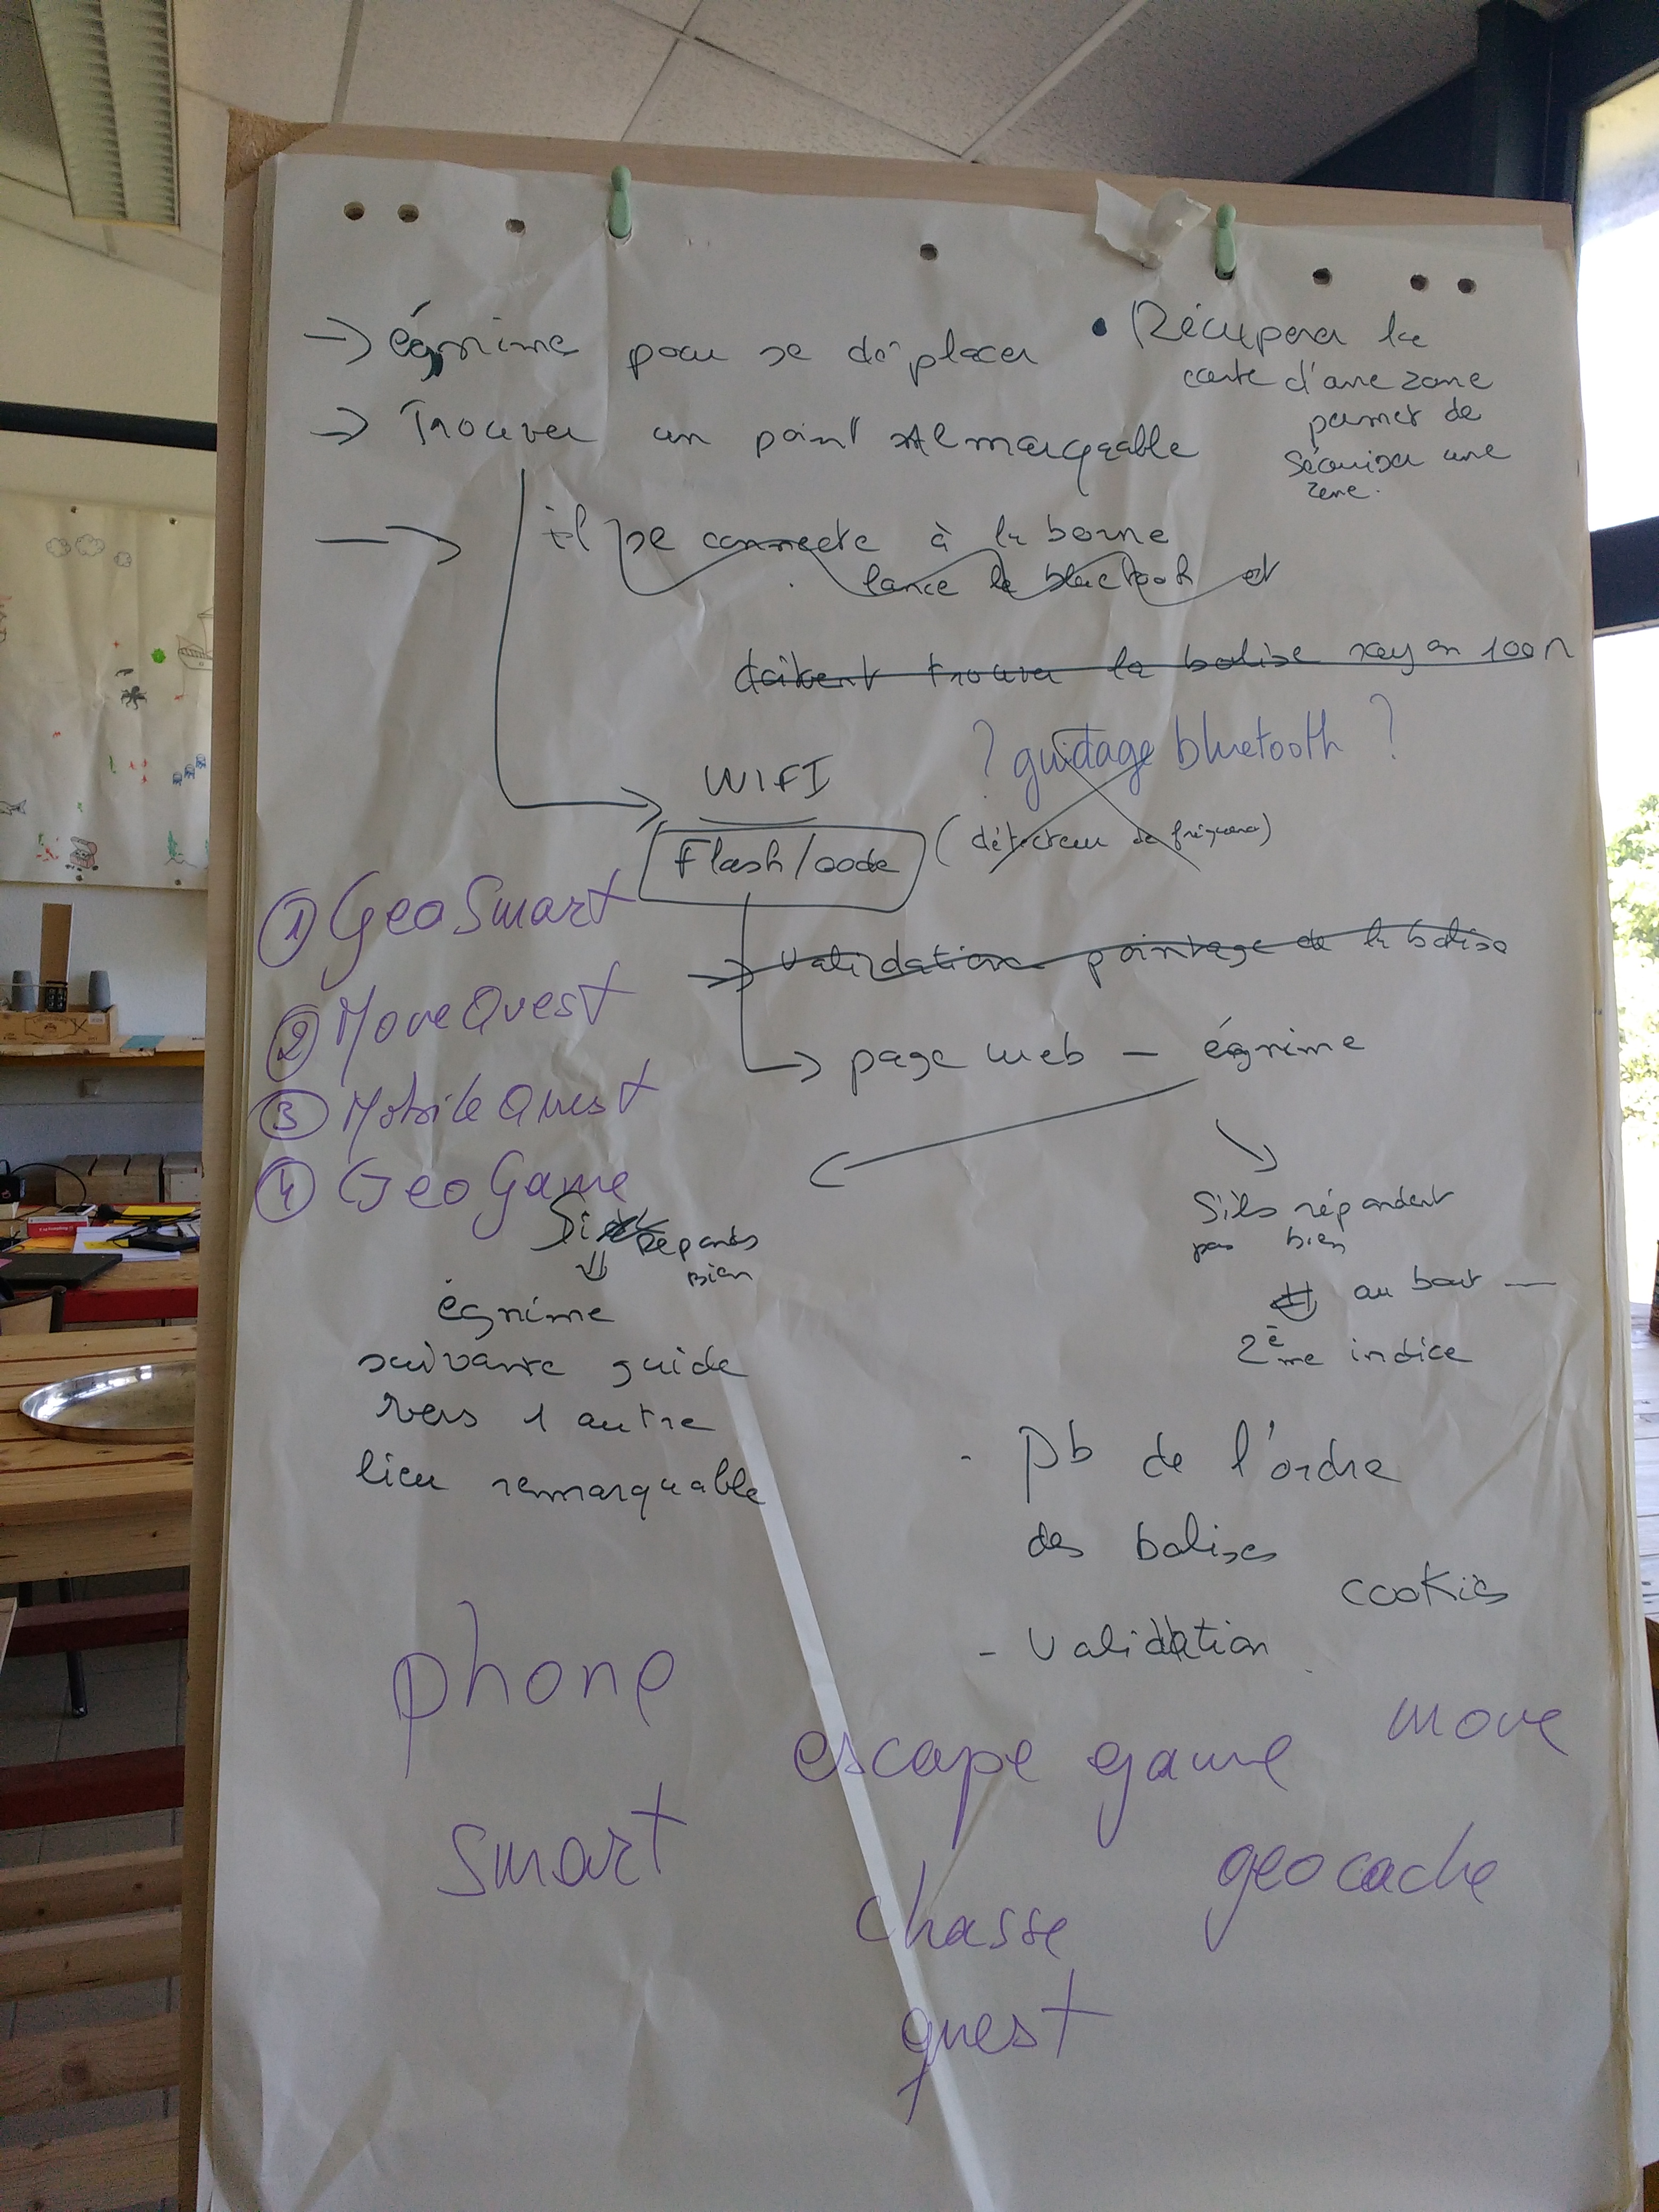 → égnime pour se déplacer
→ Trouver un point remarquable
• Récuperer la
carte d'une zone
permet de
sécuriser une
zone.
→ il se connecte à la borne
lance le bluetooh et
doivent trouver la balise rayon 100 m
? guidage bluetooth ?
WIFI
Flash/code (détecteur de fréquence)
① GeoSmart
② MoveQuest
③ MobileQuest
④ GeoGame
→ validation pointage de la balise
→ page web — égnime
Si Reponds
bien
⇓
égnime
suivante guide
vers 1 autre
lieu remarquable
S'ils répondent
pas bien
⇓ au bout —
2ème indice
- Pb de l'ordre
des balises
cookies
- Validation
phone
escape game
move
smart
geocache
chasse
quest